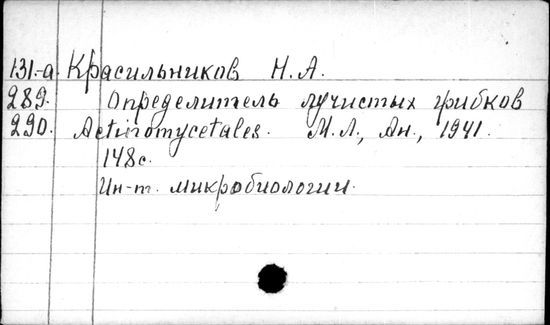 131-а Красильников Н.А.
289. Определитель лучистых грибков
290. Actinomycetales. М.Л., Ан., 1941.
148с.
Ин-т. микробиологии.